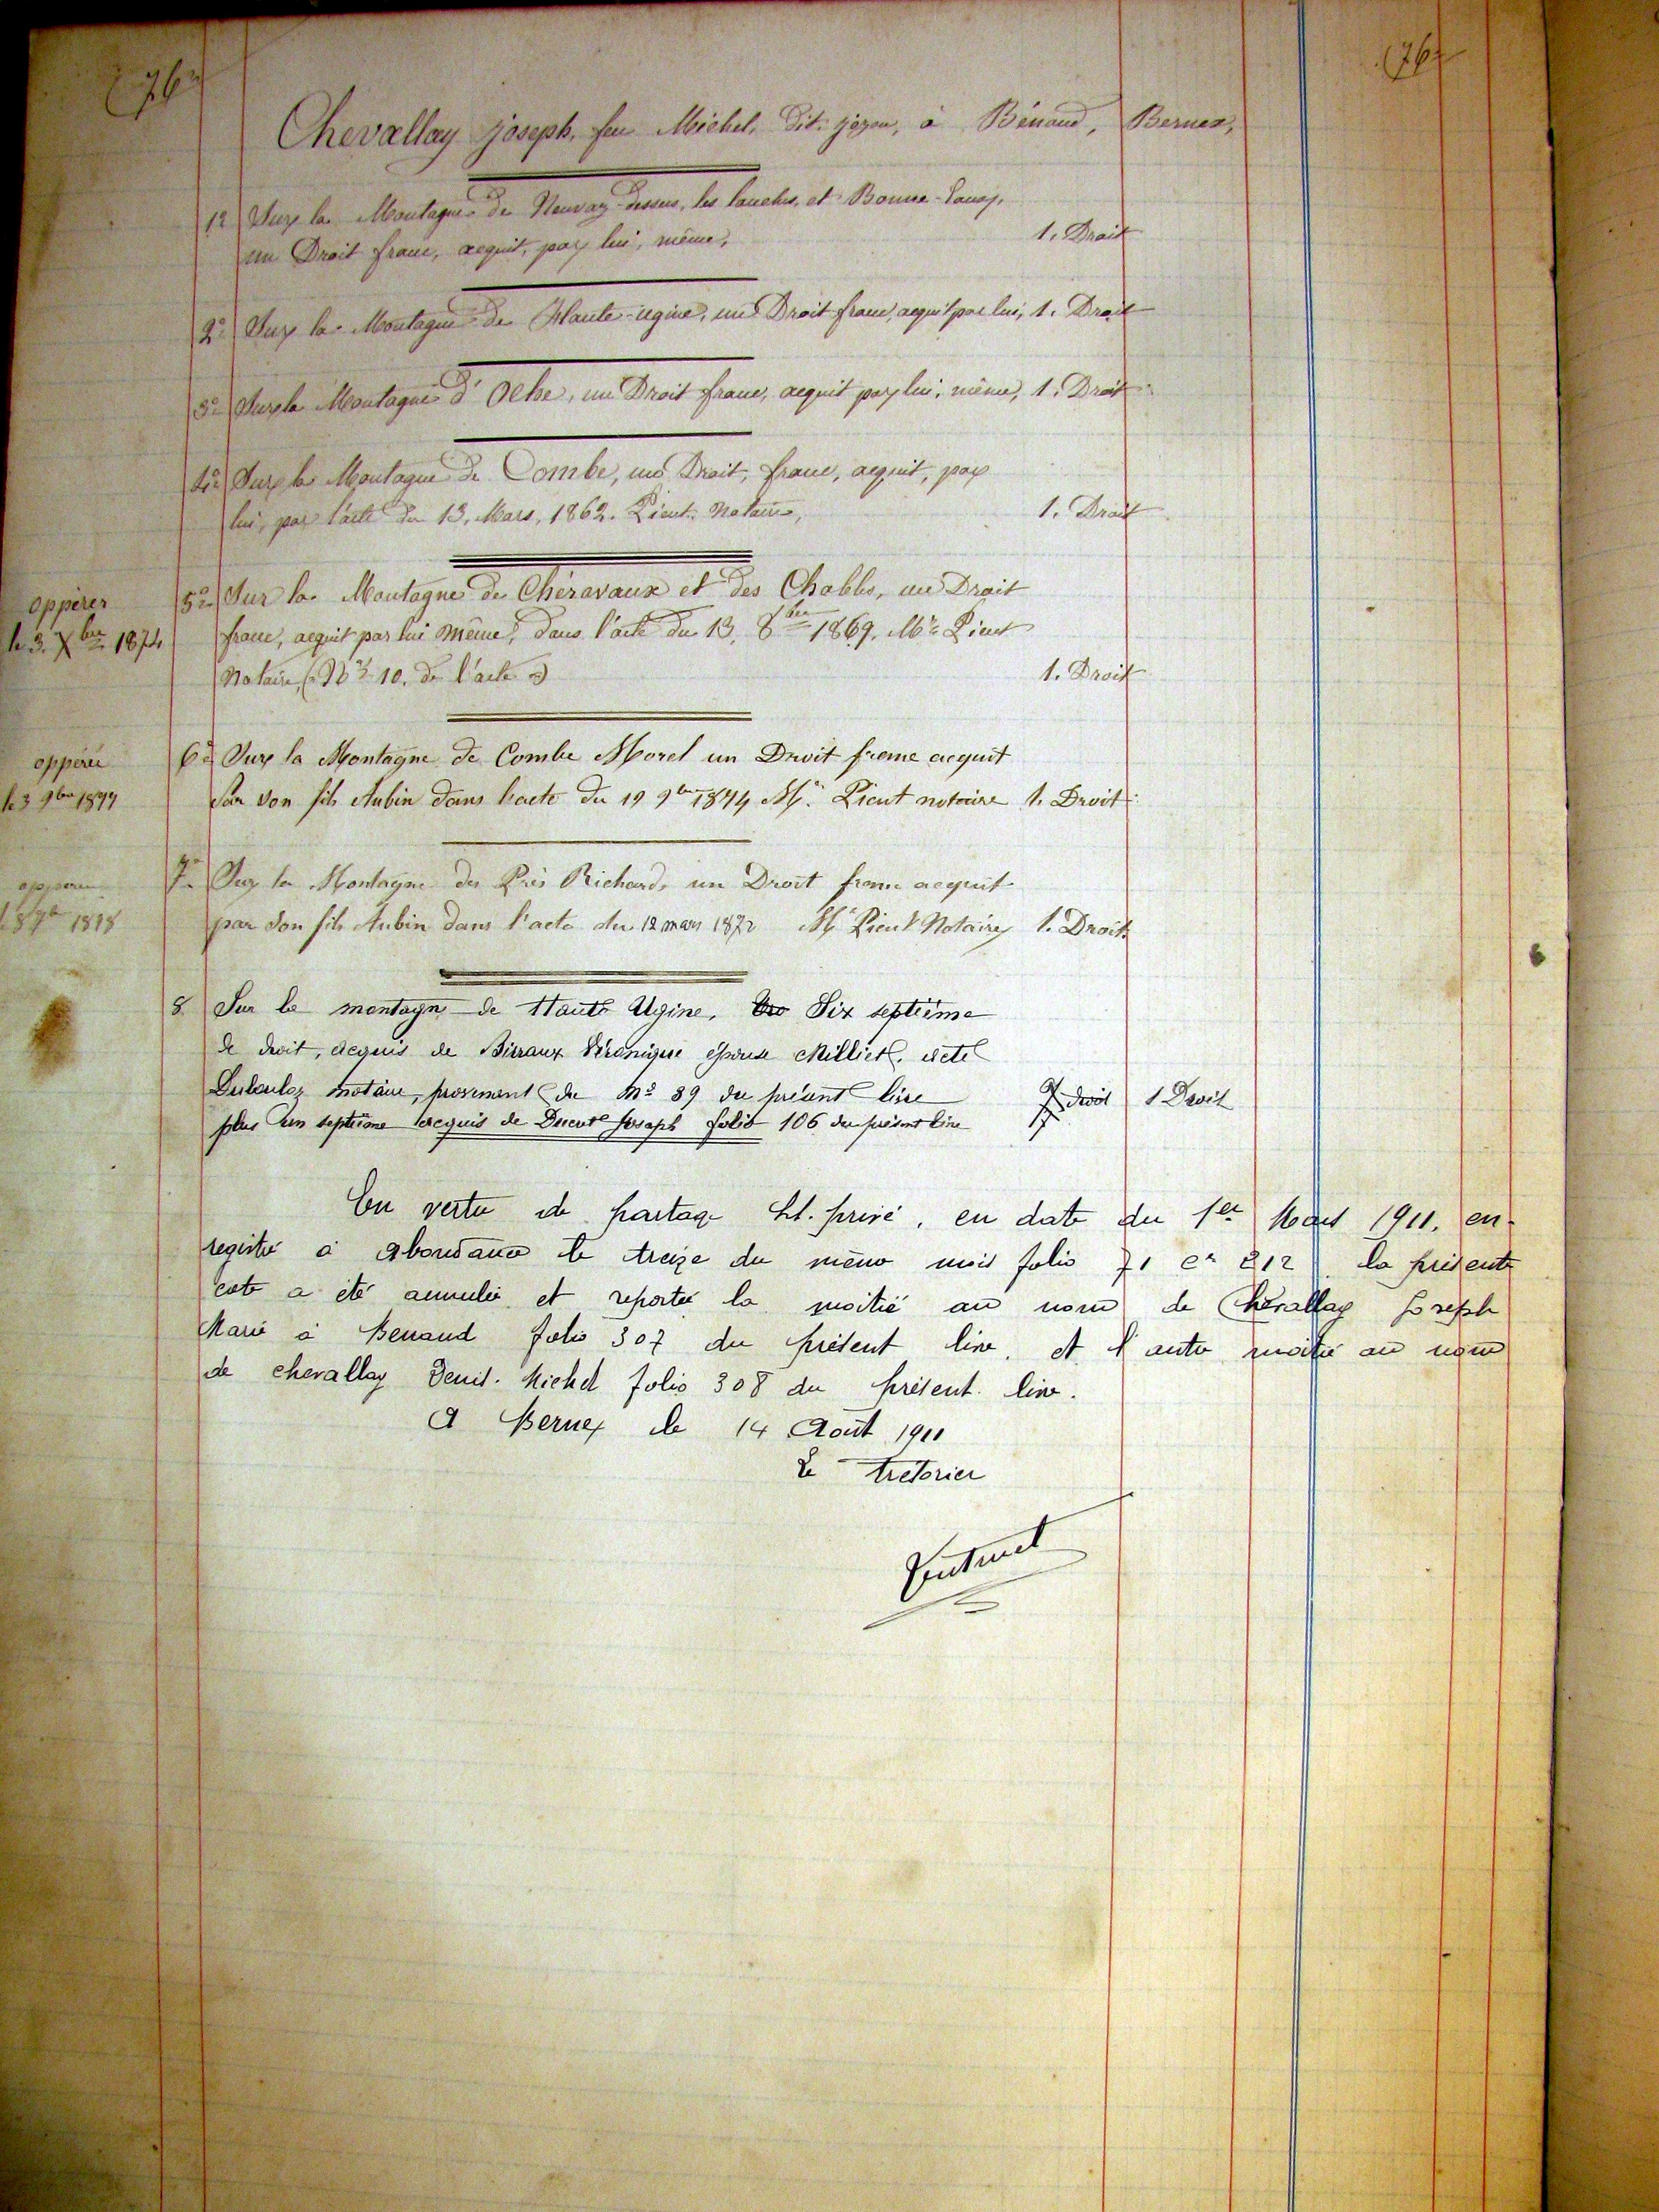 (76
(76
Chevallay joseph, feu Michel, dit. jozon, à Bénand, Bernex,
1º Sur la Montagne de Neuvaz-dessus, les lanches, et Bonne-Eaux,
un Droit franc, acquit, par lui, même, 1. Droit
2º Sur la Montagne de Haute-ugine, un Droit franc, acquit par lui, 1. Droit
3º Sur la Montagne d'Oche, un Droit franc, acquit par lui, même, 1. Droit
4º Sur la Montagne de Combe, un Droit, franc, acquit, par
lui, par l'acte du 13, Mars, 1862. Pieut. Notaire, 1. Droit
oppérer
le 3. Xbre 1874
5º Sur la Montagne de Chéravaux et des Chables, un Droit
franc, acquit par lui même, dans l'acte du 13, 8bre 1869. Mre Pieut
Notaire, (Nº 10. de l'acte) 1. Droit
opperée
le 3 9bre 1877
6º Sur la Montagne de Combe Morel un Droit franc acquit
Par son fils Aubin dans l'acte du 19 9bre 1874 Me Pieut notaire 1. Droit
1878
7º Sur la Montagne des Près Richard, un Droit franc acquit
par son fils Aubin dans l'acte du 12 mars 1872 Me Pieut Notaire 1. Droit
8. Sur la montagne de Haute Ugine. Six septième
de droit, acquis de Birraux Véronique épouse Milliet. acte
Duboulox notaire, provenant du Nº 89 du présent livre droit 1 Droit
plus un septième acquis de Ducret Joseph folio 106 du présent livre
En vertu de partage St. privé, en date du 1er Mars 1911, en-
registré à Abondance le treize du même mois folio 71 Ce 212 la présente
cote a été annulée et reportée la moitié au nom de Chevallay Joseph
Marie à Benand folio 307 du présent livre, et l'autre moitié au nom
de chevallay Denis. Michel folio 308 du présent livre.
A Bernex le 14 Août 1911
Le trésorier